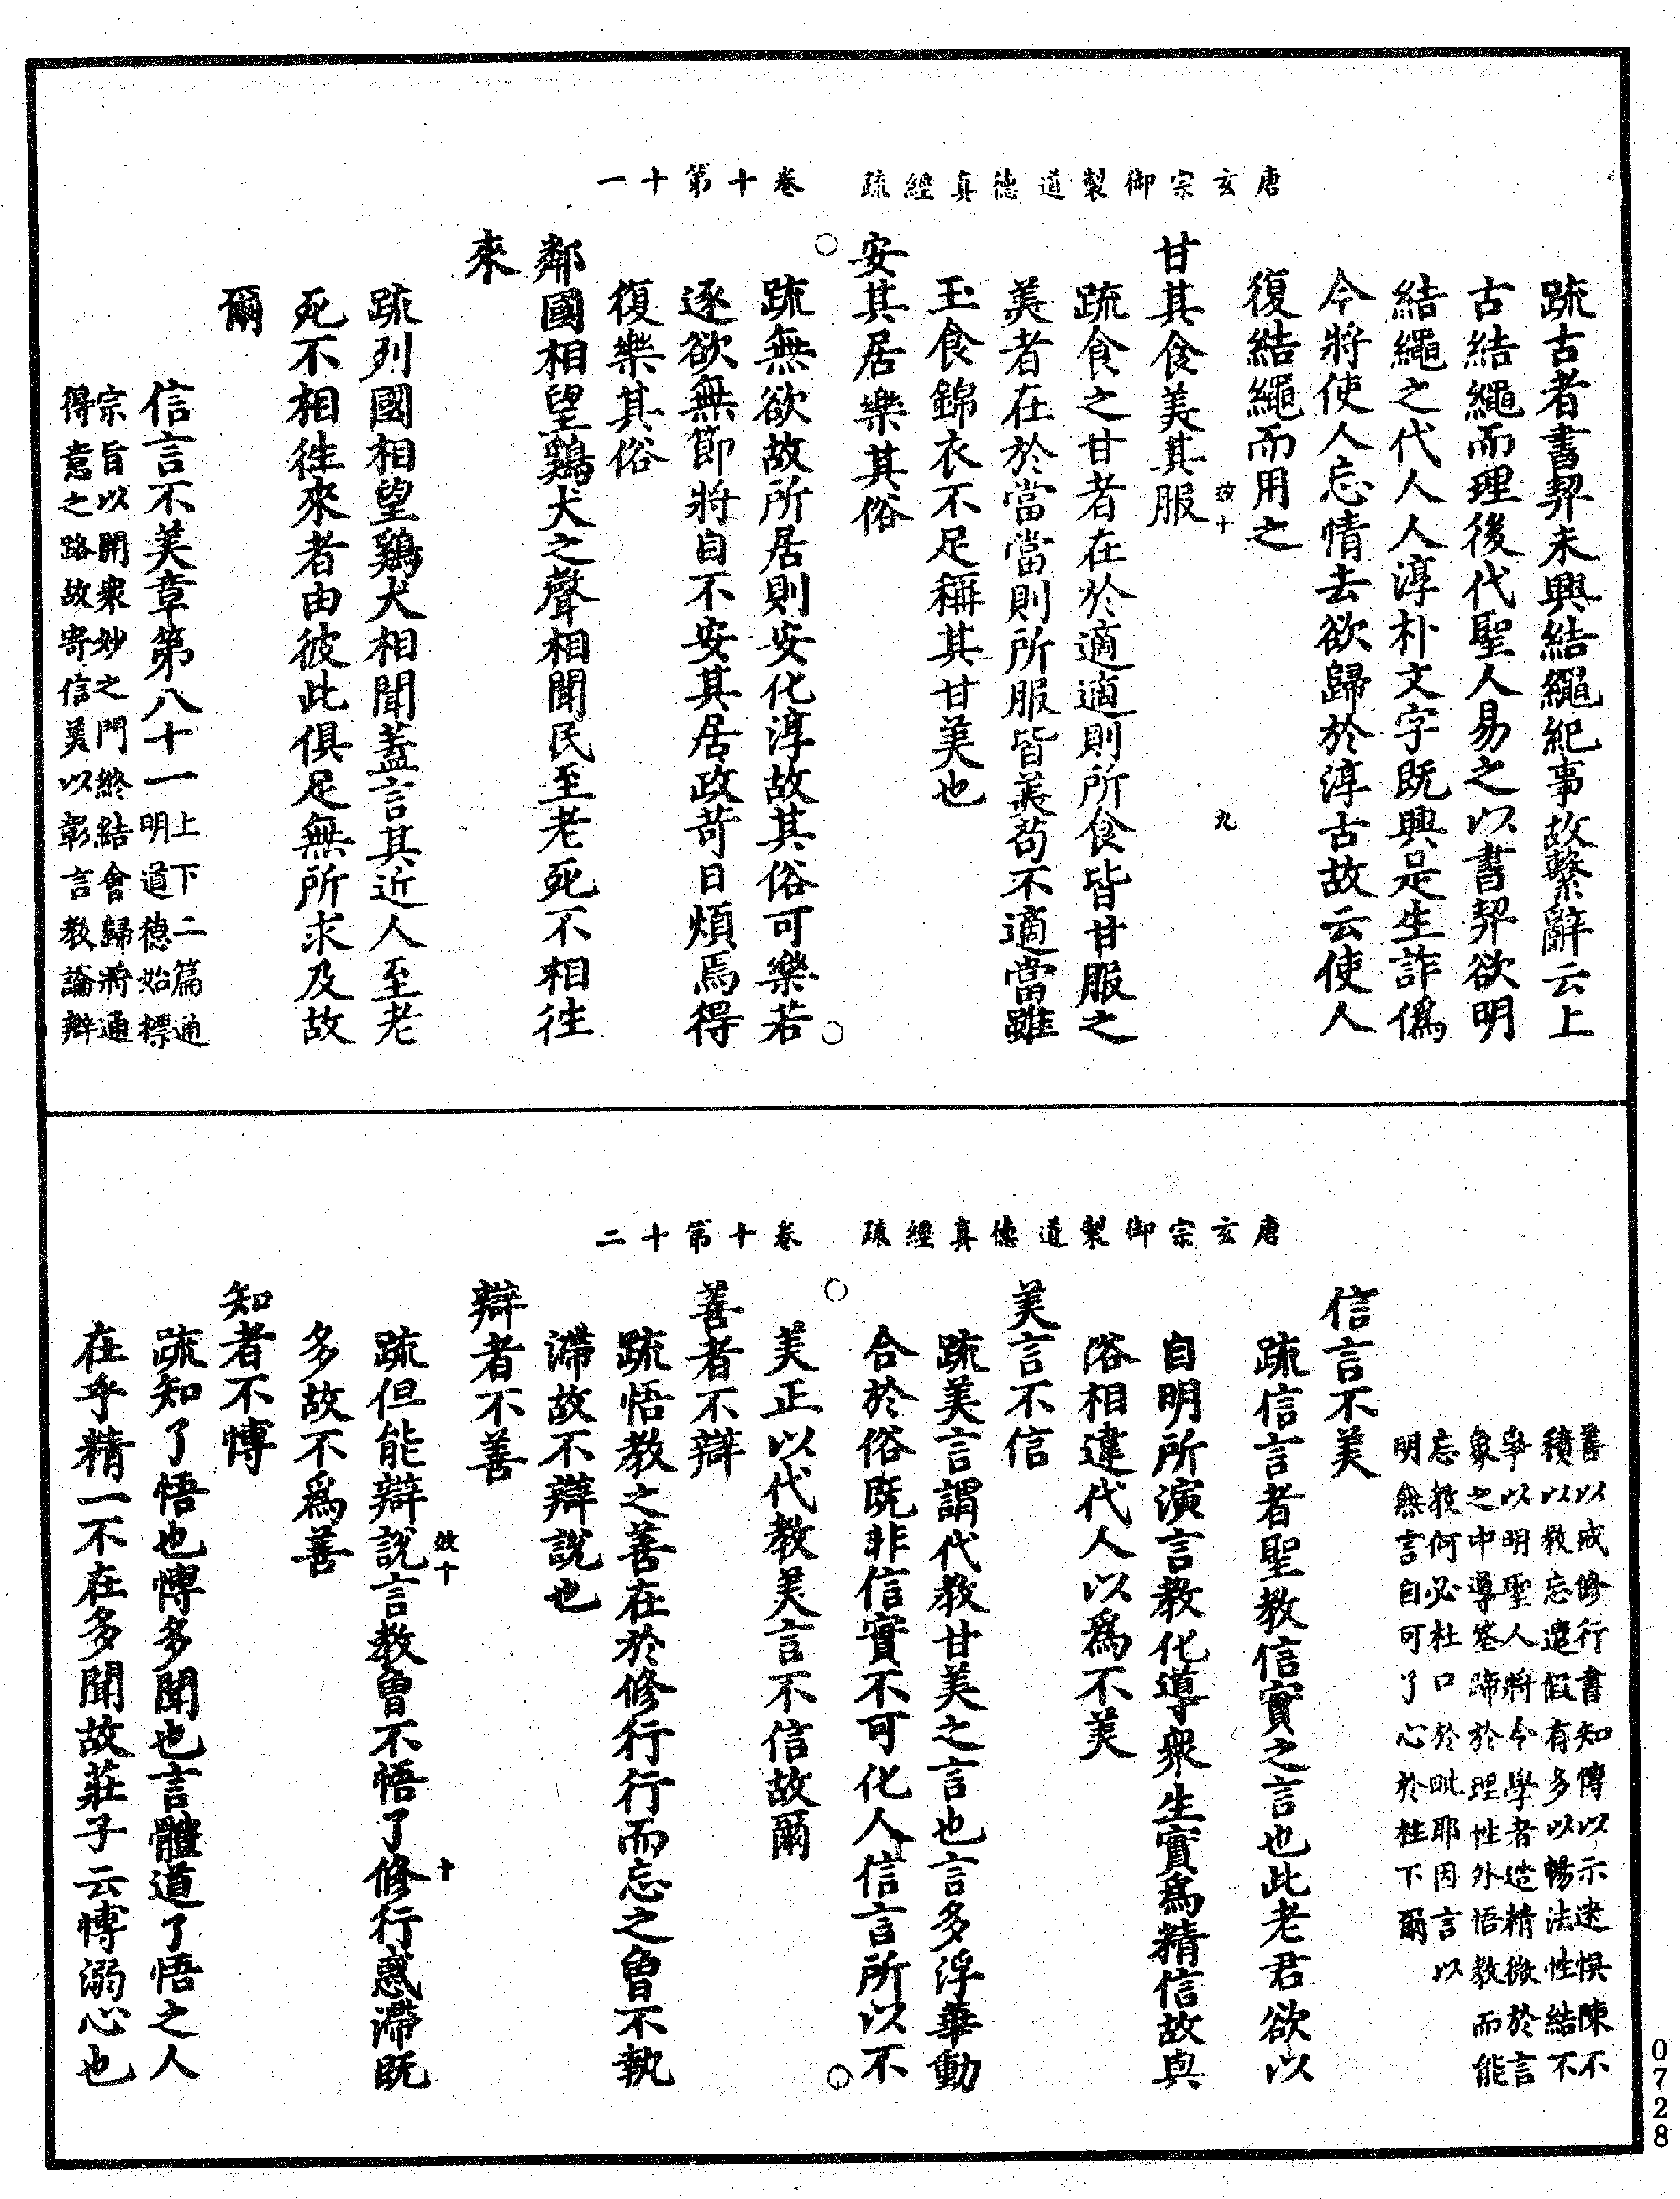 唐玄宗御製道德真經疏　卷十第十一
疏古者書契未興結繩紀事故繫辭云上
古結繩而理後代聖人易之以書契欲明
結繩之代人人淳朴文字既興是生詐僞
今將使人忘情去欲歸於淳古故云使人
復結繩而用之
效十　九
甘其食美其服
疏食之甘者在於適適則所食皆甘服之
美者在於當當則所服皆美苟不適當雖
玉食錦衣不足稱其甘美也
安其居樂其俗
疏無欲故所居則安化淳故其俗可樂若
逐欲無節將自不安其居政苛日煩焉得
復樂其俗
鄰國相望鷄犬之聲相聞民至老死不相往
來
疏列國相望鷄犬相聞蓋言其近人至老
死不相往來者由彼此俱足無所求及故
爾
信言不美章第八十一上下二篇通
明道德始標
宗旨以開衆妙之門終結會歸將通
得意之路故寄信美以彰言教論辯
唐玄宗御製道德真經疏　卷十第十二
善以戒修行書知博以示迷悞陳不
積以教忘遣假有多以暢法性結不
爭以明聖人將令學者造精微於言
象之中導筌蹄於理性外悟教而能
忘教何必杜口於毗耶因言以
明無言自可了心於柱下爾
信言不美
疏信言者聖教信實之言也此老君欲以
自明所演言教化導衆生實爲精信故與
俗相違代人以爲不美
美言不信
疏美言謂代教甘美之言也言多浮華動
合於俗既非信實不可化人信言所以不
美正以代教美言不信故爾
善者不辯
疏悟教之善在於修行行而忘之曾不執
滯故不辯說也
辯者不善
效十　十
疏但能辯說言教曾不悟了修行惑滯既
多故不爲善
知者不博
疏知了悟也博多聞也言體道了悟之人
在乎精一不在多聞故莊子云博溺心也
0728